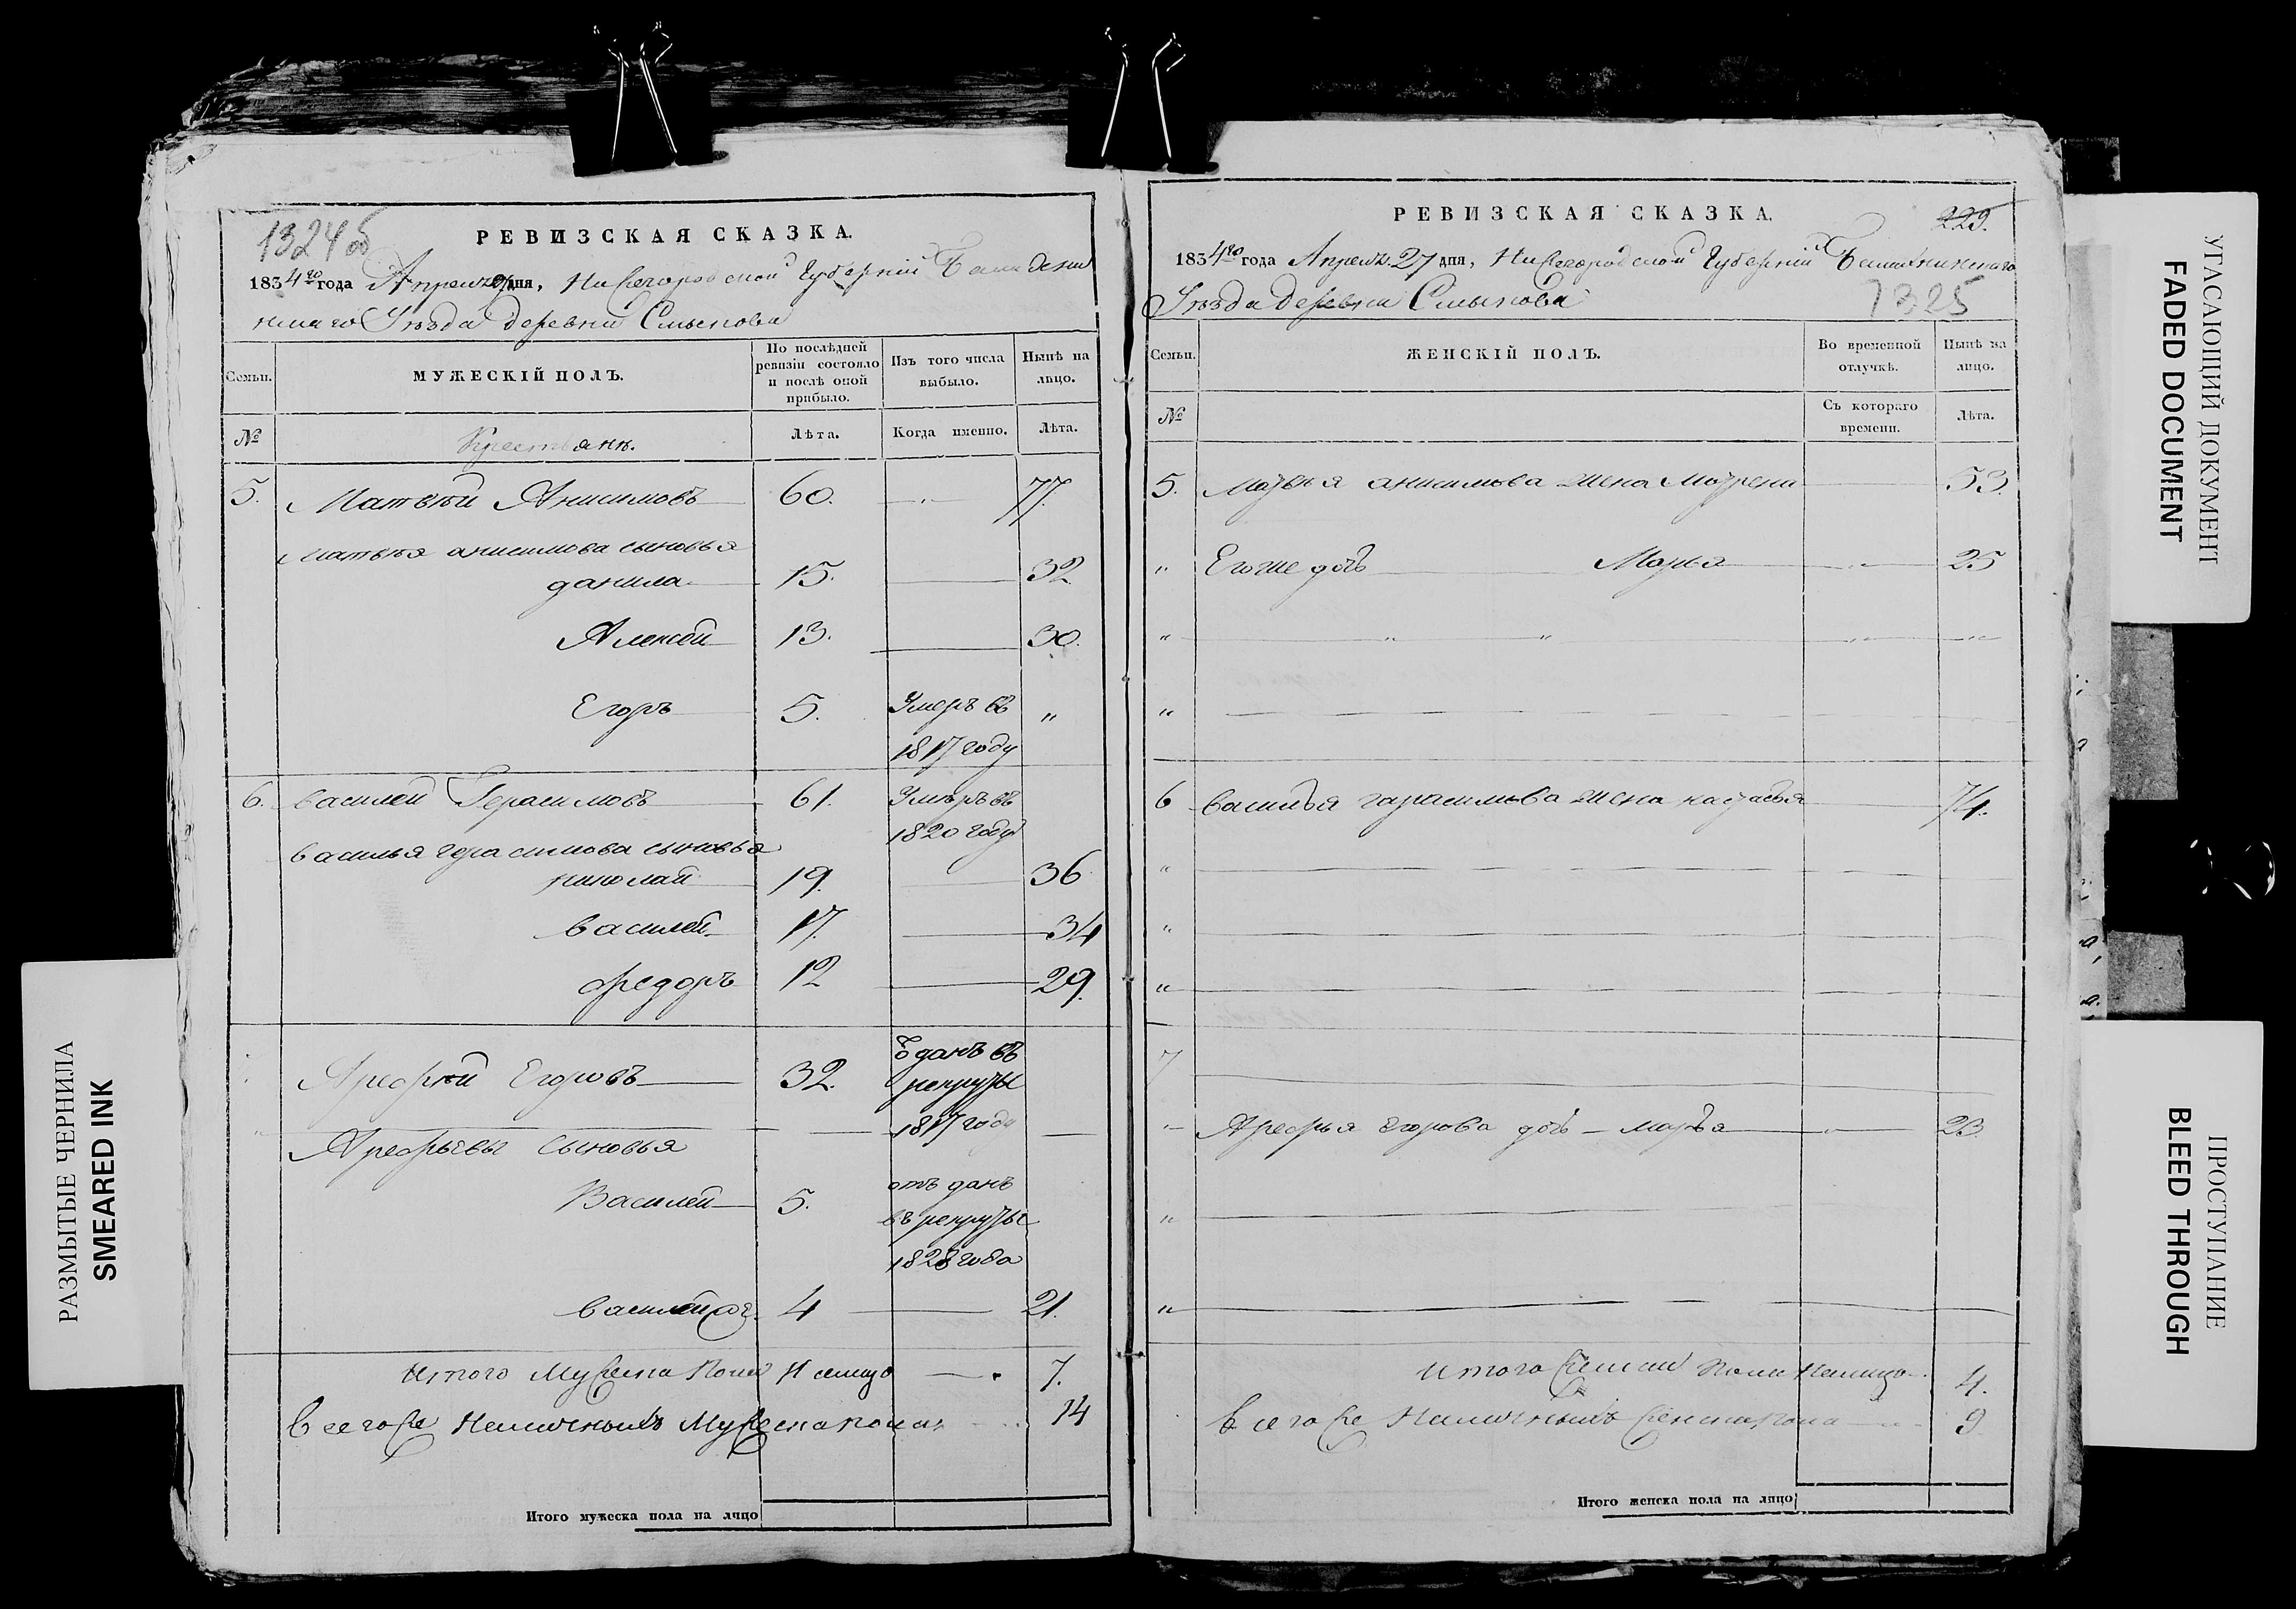 1324об
РЕВИЗСКАЯ СКАЗКА.
1834го года Апреля 27 дня, Нижегородской Губернiи
Уѣзда деревни Смыкова
Семьи.
МУЖЕСКIЙ ПОЛЪ.
По послѣдней ревизiи состояло и послѣ оной прибыло.
Изъ того числа выбыло.
Нынѣ на лицо.
№
Крестьянъ.
Лѣта.
Когда именно.
Лѣта.
5. Матвѣй Анисимовъ 60. 77.
Матвѣя анисимова сыновья
данила 15. 32
Алексѣй 13. 30.
Егоръ 5. Умеръ въ "
1817 году
6. василей Герасимовъ 61. Умеръ въ
1820 году
василья герасимова сыновья
николай 19. 36
василей 17. 34
федоръ 12 29.
Арефѣй Егоровъ 32. Отданъ въ
рекруты
1817 году
Арефьевы сыновья
Василей 5. отъ данъ
въ рекруты
1828 года
василей 4 21.
Итого Мужеска пола На лицо 7.
Всегоже Наличныхъ Мужеска пола 14
Итого мужеска пола на лицо
РЕВИЗСКАЯ СКАЗКА.
229.
1834го года Апреля 27 дня, Нижегородской Губернiи
Уѣзда деревни Смыкова 1325
Семьи.
ЖЕНСКIЙ ПОЛЪ.
Во временной отлучкѣ.
Нынѣ на лицо.
№
Съ котораго времени.
Лѣта.
5. Матвѣя анисимова жена 53.
" Егоже дочь Марья " 25
" " " " "
"
6 василья гарасимова жена настасья 74.
"
"
"
7
" Арефья Егорова дочь – марья " 23.
"
"
Итого Женска пола На лицо 4.
Всегоже Наличныхъ женска пола 9
Итого женска пола на лицо
РАЗМЫТЫЕ ЧЕРНИЛА
SMEARED INK
УГАСАЮЩИЙ ДОКУМЕНТ
FADED DOCUMENT
ПРОСТУПАНИЕ
BLEED THROUGH